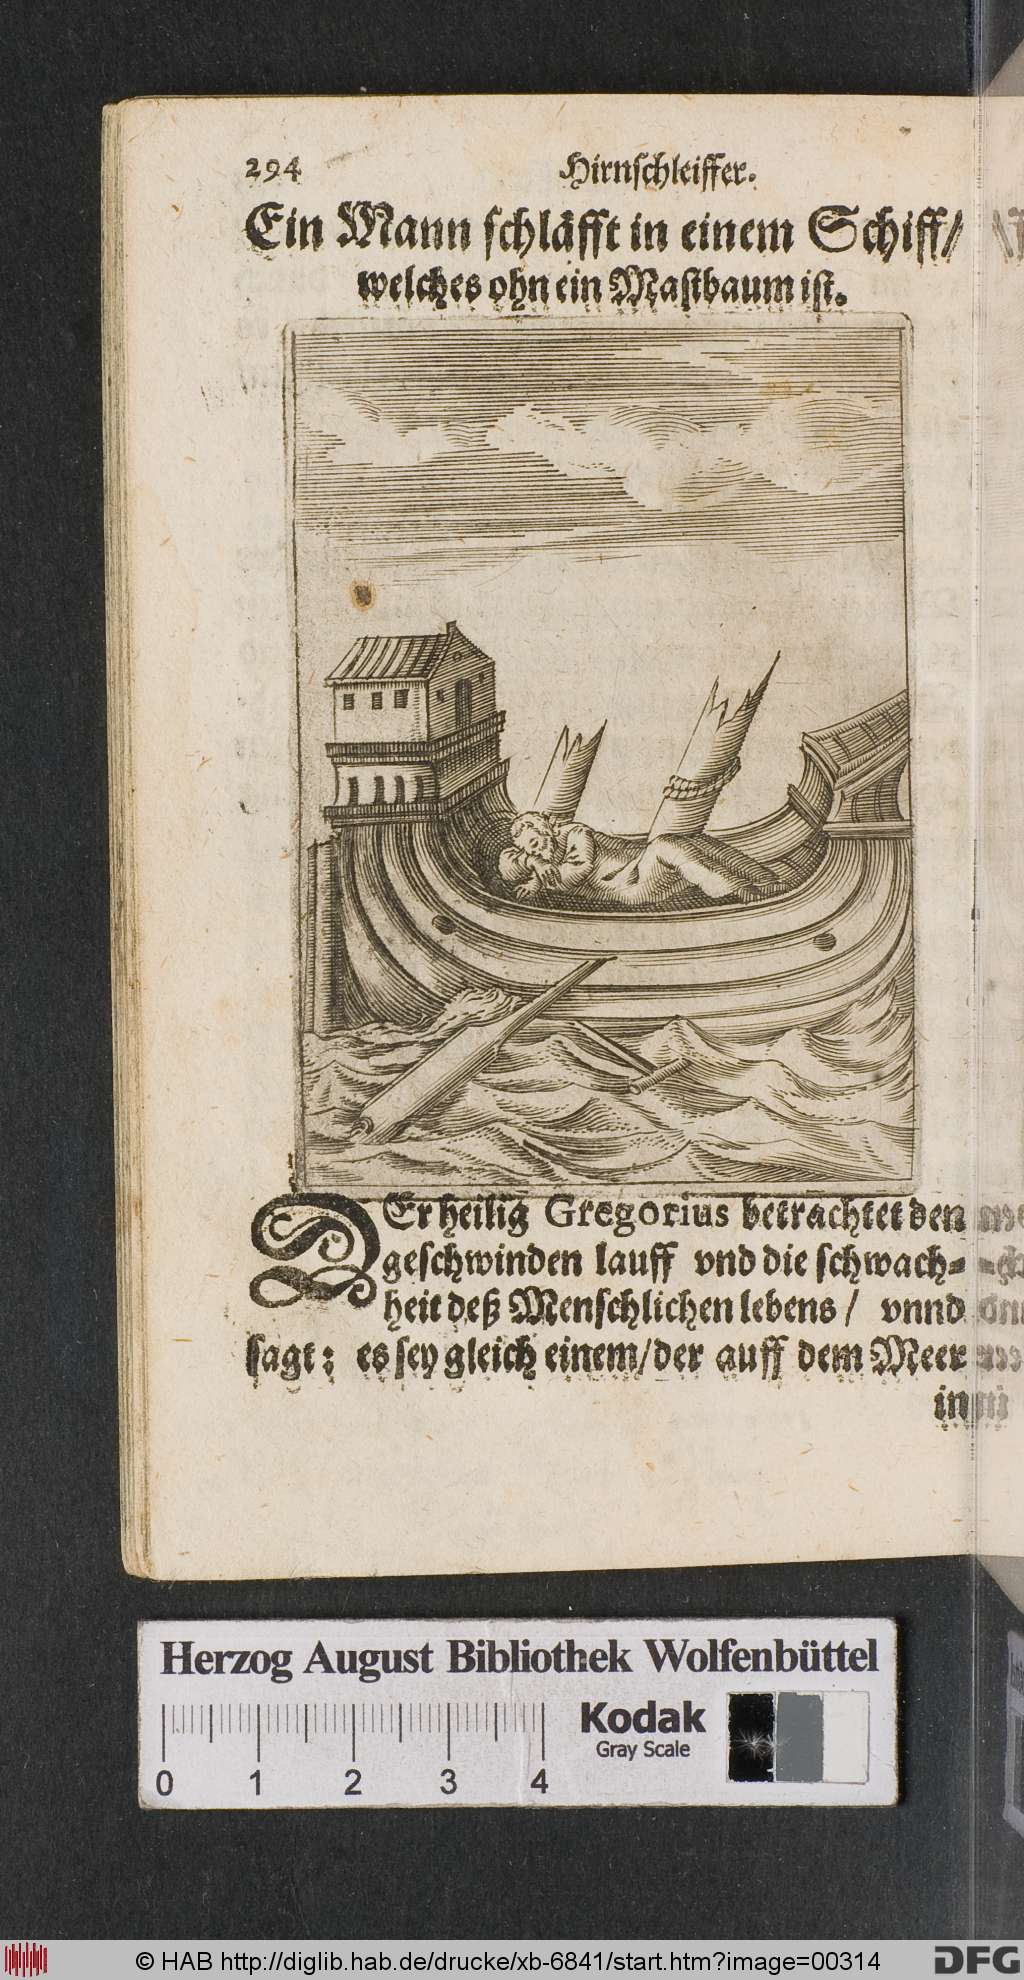 294 Hirnschleiffer.
Ein Mann schläfft in einem Schiff/
welches ohn ein Mastbaum ist.
DEr heilig Gregorius betrachtet den
geschwinden lauff vnd die schwach-
heit deß Menschlichen lebens/ vnnd
sagt: es sey gleich einem/der auff dem Meer
in
Herzog August Bibliothek Wolfenbüttel
Kodak
Gray Scale
0 1 2 3 4
© HAB http://diglib.hab.de/drucke/xb-6841/start.htm?image=00314
DFG